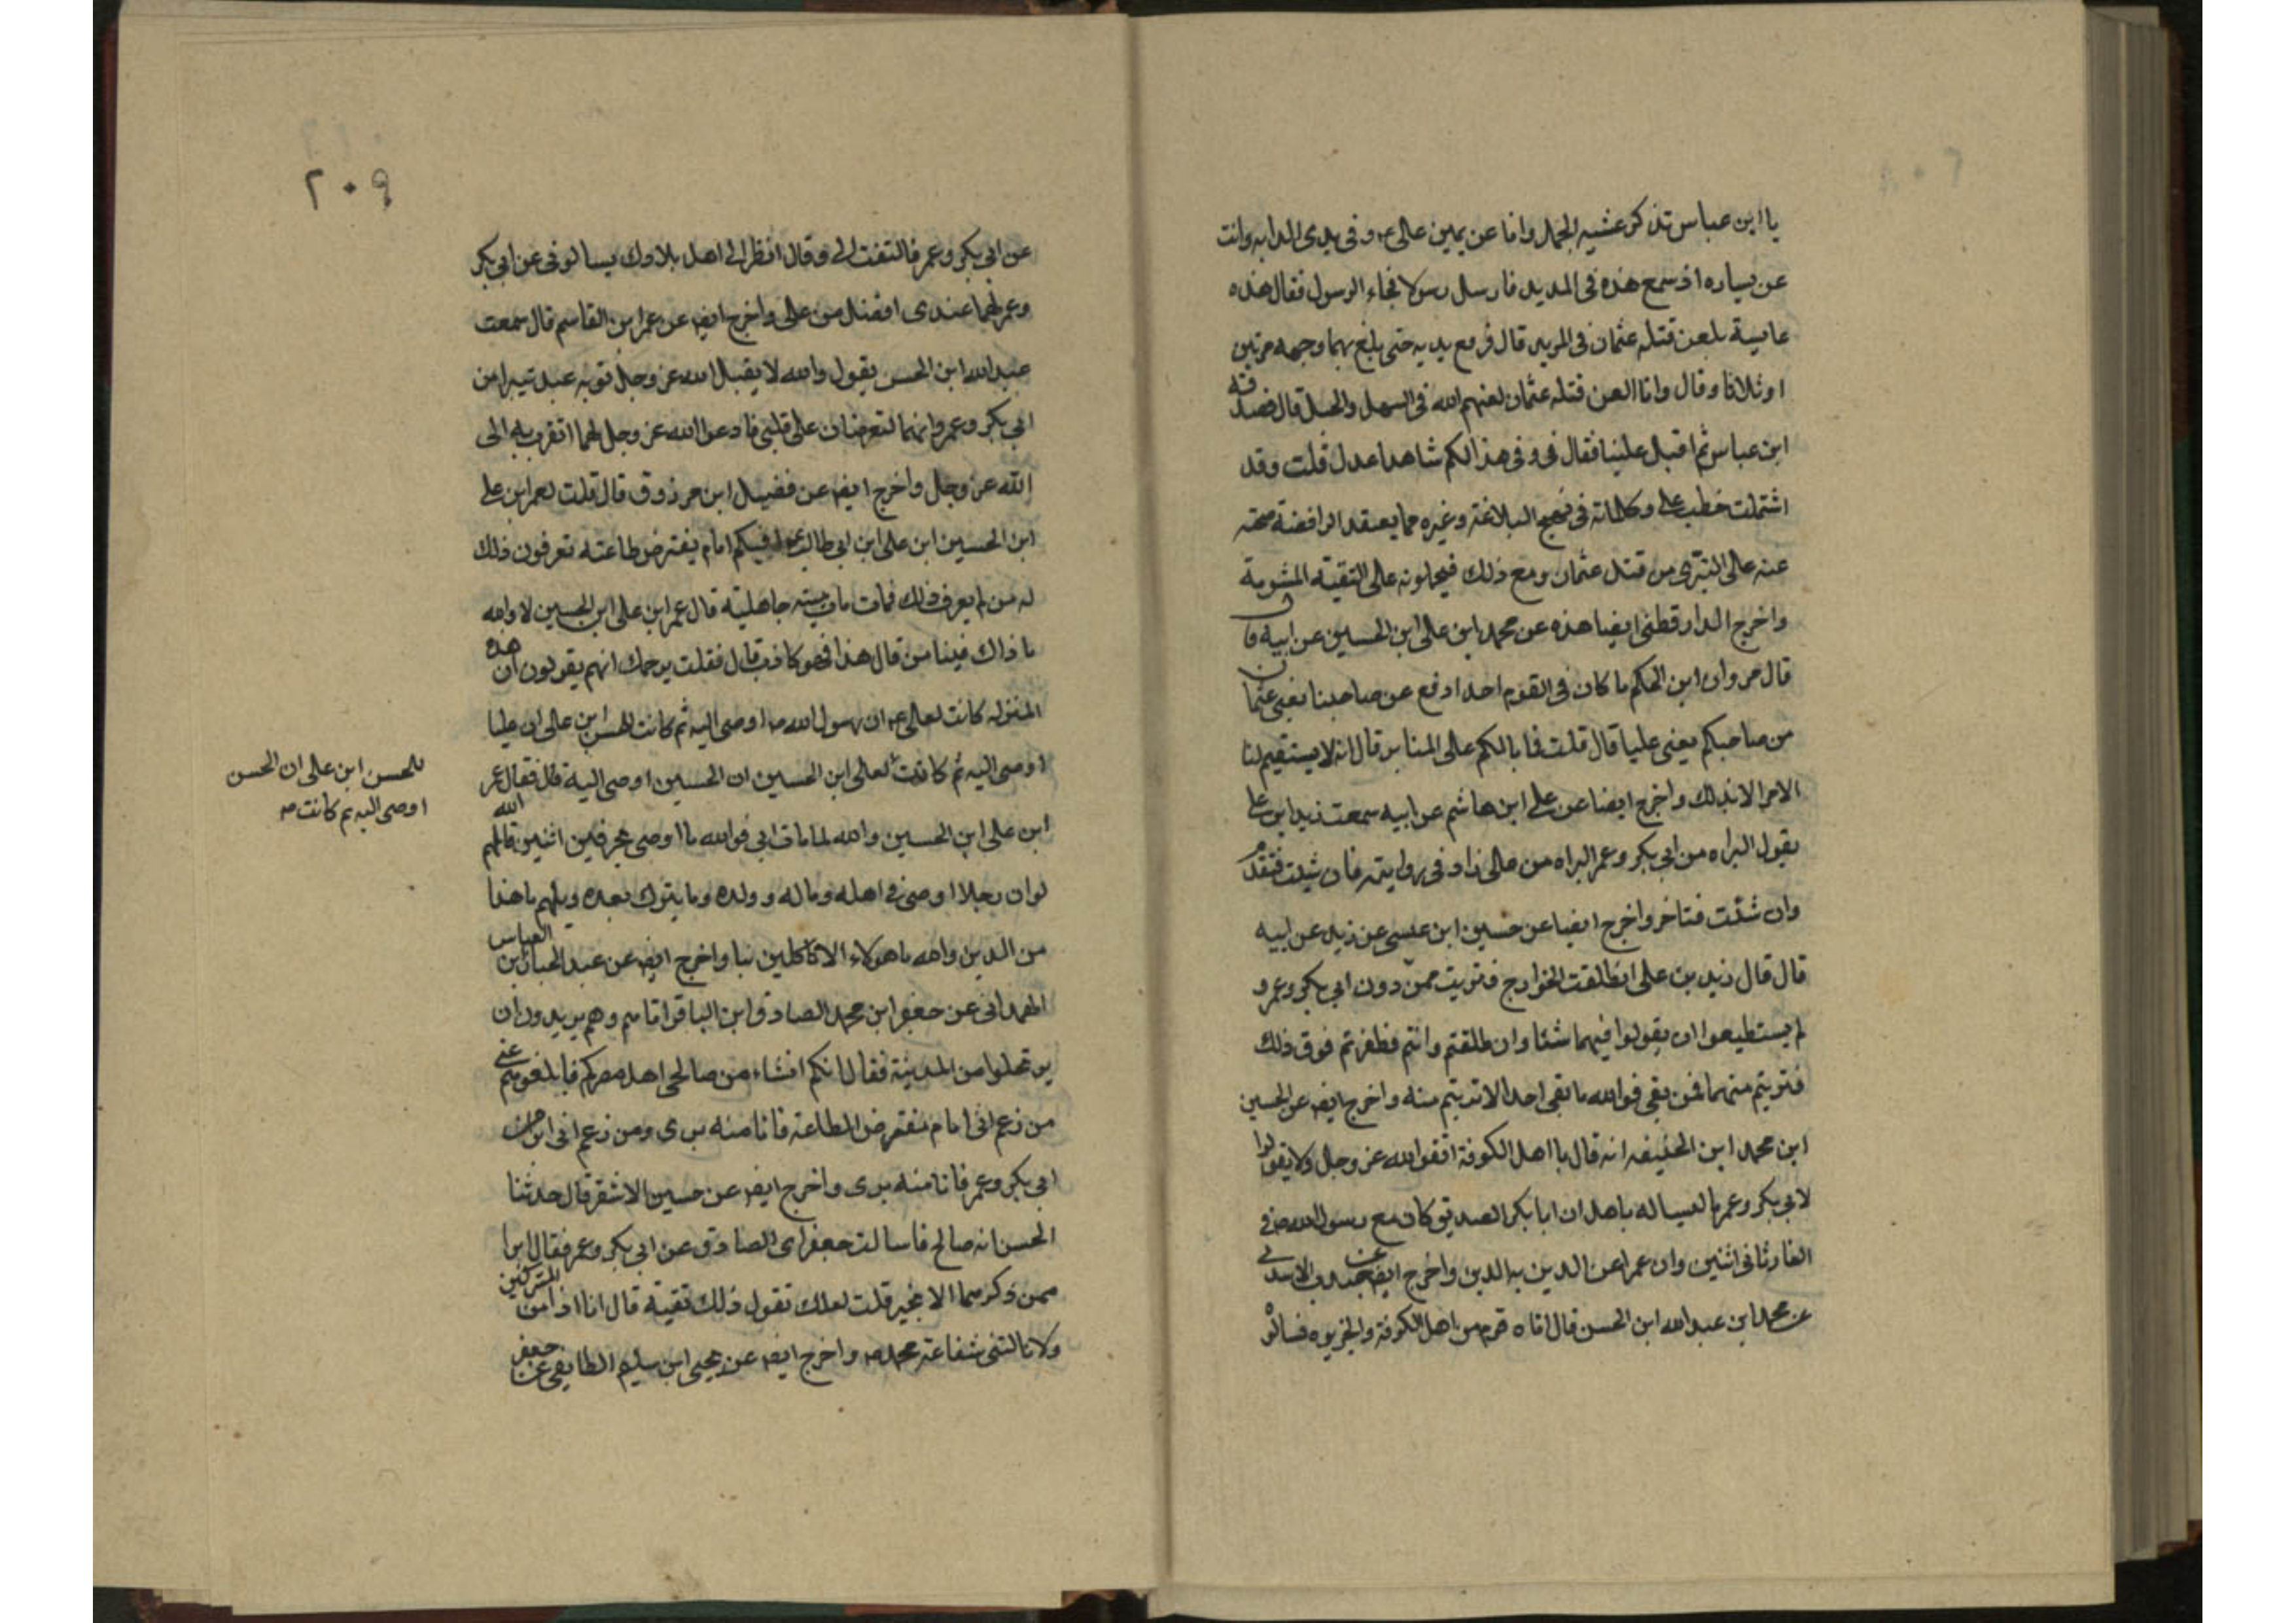 يا ابن عباس تذكر عشيه الجمل وانا عن يمين على ع وفى يدى الدابه وانت
عن يساره اذ سمع هذه فى المديد فارسل رسولا فجاء الرسول فقال هذه
عايسة يلعن قتله عثمان فى المربد قال فرمع يديه حتى بلغ بهما وجهه مرتين
اوثلاثا وقال وانا العن قتله عثمان لعنهم الله فى السهل والجبل قال فصدقه
ابن عباس ثم اقبل علينا فقال فى وفى هذا لكم شاهدا عدل قلت وقد
اشتملت خطب على وكلماته فى نهج البلاغة وغيره مما يعتقد الرافضة صحته
عنه على التبرى من قتل عثمان ومع ذلك فيحملونه على التقيته المشومة
واخرج الدارقطنى ايضا هذه عن محمد ابن على ابن الحسين عن ابيه قال
قال مروان ابن الحكم ما كان فى القوم احد ادفع عن صاحبنا يعنى عثمان
من صاحبكم يعنى عليا قال قلت فما بالكم على المنابر قال انه لا يستقيم لنا
الامر الا بذلك واخرج ايضا عن على ابن هاشم عن ابيه سمعت زيد ابن على
يقول البراه من ابى بكر وعمر البراه من على زاد فى روايته فان شئت فتقدم
وان شئت فتاخر واخرج ايضا عن حسين ابن عيسى عن زيد عن ابيه
قال قال زيد بن على انطلقت الخوارج فتريت ممن دون ابى بكر وعمر و
لم يستطيعوا ان يقولوا فيهما شئا وان طلقتم وانتم فظفرتم فوق ذلك
فتريتم منهما فمن بقى فوالله ما بقى احد الا تريتم منه واخرج ايضه عن الحسين
ابن محمد ابن الحنيفه انه قال يا اهل الكوفة اتقوا الله عز وجل ولا يقولوا
لابى بكر وعمر ما ليسا له باهل ان ابا بكر الصديق كان مع رسول الله ص فى
الغار ثانى اثنين وان عمر اعن الدين به الدين واخرج ايضه عن جندب الاسدى
عن محمد ابن عبد الله ابن الحسن قال اتاه قوم من اهل الكوفة والجزيره فسالوه
٢٠٩
عن ابى بكر وعمر فالتفت الى وقال انظر الى اهل بلادك يسالونى عن ابى بكر
وعمر لهما عندى افضل من على واخرج ايضه عن عمر ابن القاسم قال سمعت
عبد الله ابن الحسن يقول والله لا يقبل الله عز وجل توبه عبد تيرا من
ابى بكر وعمر وانهما لتعرضان على قلبى فادعو الله عز وجل لهما اتقرب به الى
الله عز وجل واخرج ايضه عن فضيل ابن مرذوق قال قلت لعمر ابن على
ابن الحسين ابن على ابن ابى طالب افيكم امام يفترض طاعته تعرفون ذلك
له من لم يعرف ذلك فمات مات ميته جاهليته قال عمر ابن على ابن الحسين لا والله
ما ذاك فينا من قال هذا فهو كاذب قال فقلت يرحمك انهم يقولون ان هذه
المنزله كانت لعلى ع ان رسول الله ص اوصى اليه ثم كانت للحسن ابن على ان عليا
اوصى اليه ثم كانت لعلى ابن الحسين ان الحسين اوصى اليه قال فقال عمر
للحسن ابن على ان الحسن
اوصى اليه ثم كانت صه
ابن على ابن الحسين والله لما مات ابى فوالله ما اوصى بحرفين اثنين قاتلهم الله
لوان رجلا اوصى فى اهله وماله وولده وما يترك بعده ويلهم ما هذا
من الدين والله ما هولاء الا كاكلين بنا واخرج ايضه عن عبد الجبار ابن العباس
الهمدانى عن جعفر ابن محمد الصادق ابن الباقر اتاهم وهم يريدون ان
يرتحلوا من المدينة فقال انكم انشاء من صالحى اهل مصركم فابلغوهم عنى
من زعم انى امام مفترض الطاعة فانا منه برى ومن زعم انى ابرا من
ابى بكر وعمر فانا منه برى واخرج ايضه عن حسين الاشقر قال حدثنا
الحسن انه صالح فاسالت جعفر اى الصادق عن ابى بكر وعمر فقال ابرا
ممن ذكرهما الا بخير قلت لعلك تقول ذلك تقية قال انا اذا من المشركين
ولا نالتنى شفاعة محمد ص واخرج ايضه عن يحيى ابن سليم الطايفى عن جعفر